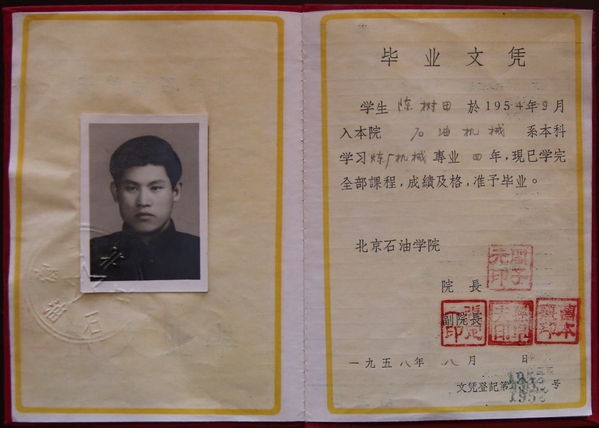 毕业文凭
学生 陈树田 於1954年9月
入本院 石油机械 系本科
学习炼厂机械專业 四 年，現已学完
全部課程，成績及格，准予毕业。
北京石油学院
院 長
副院長
一九五八年 八 月 日
文凭登記第 号